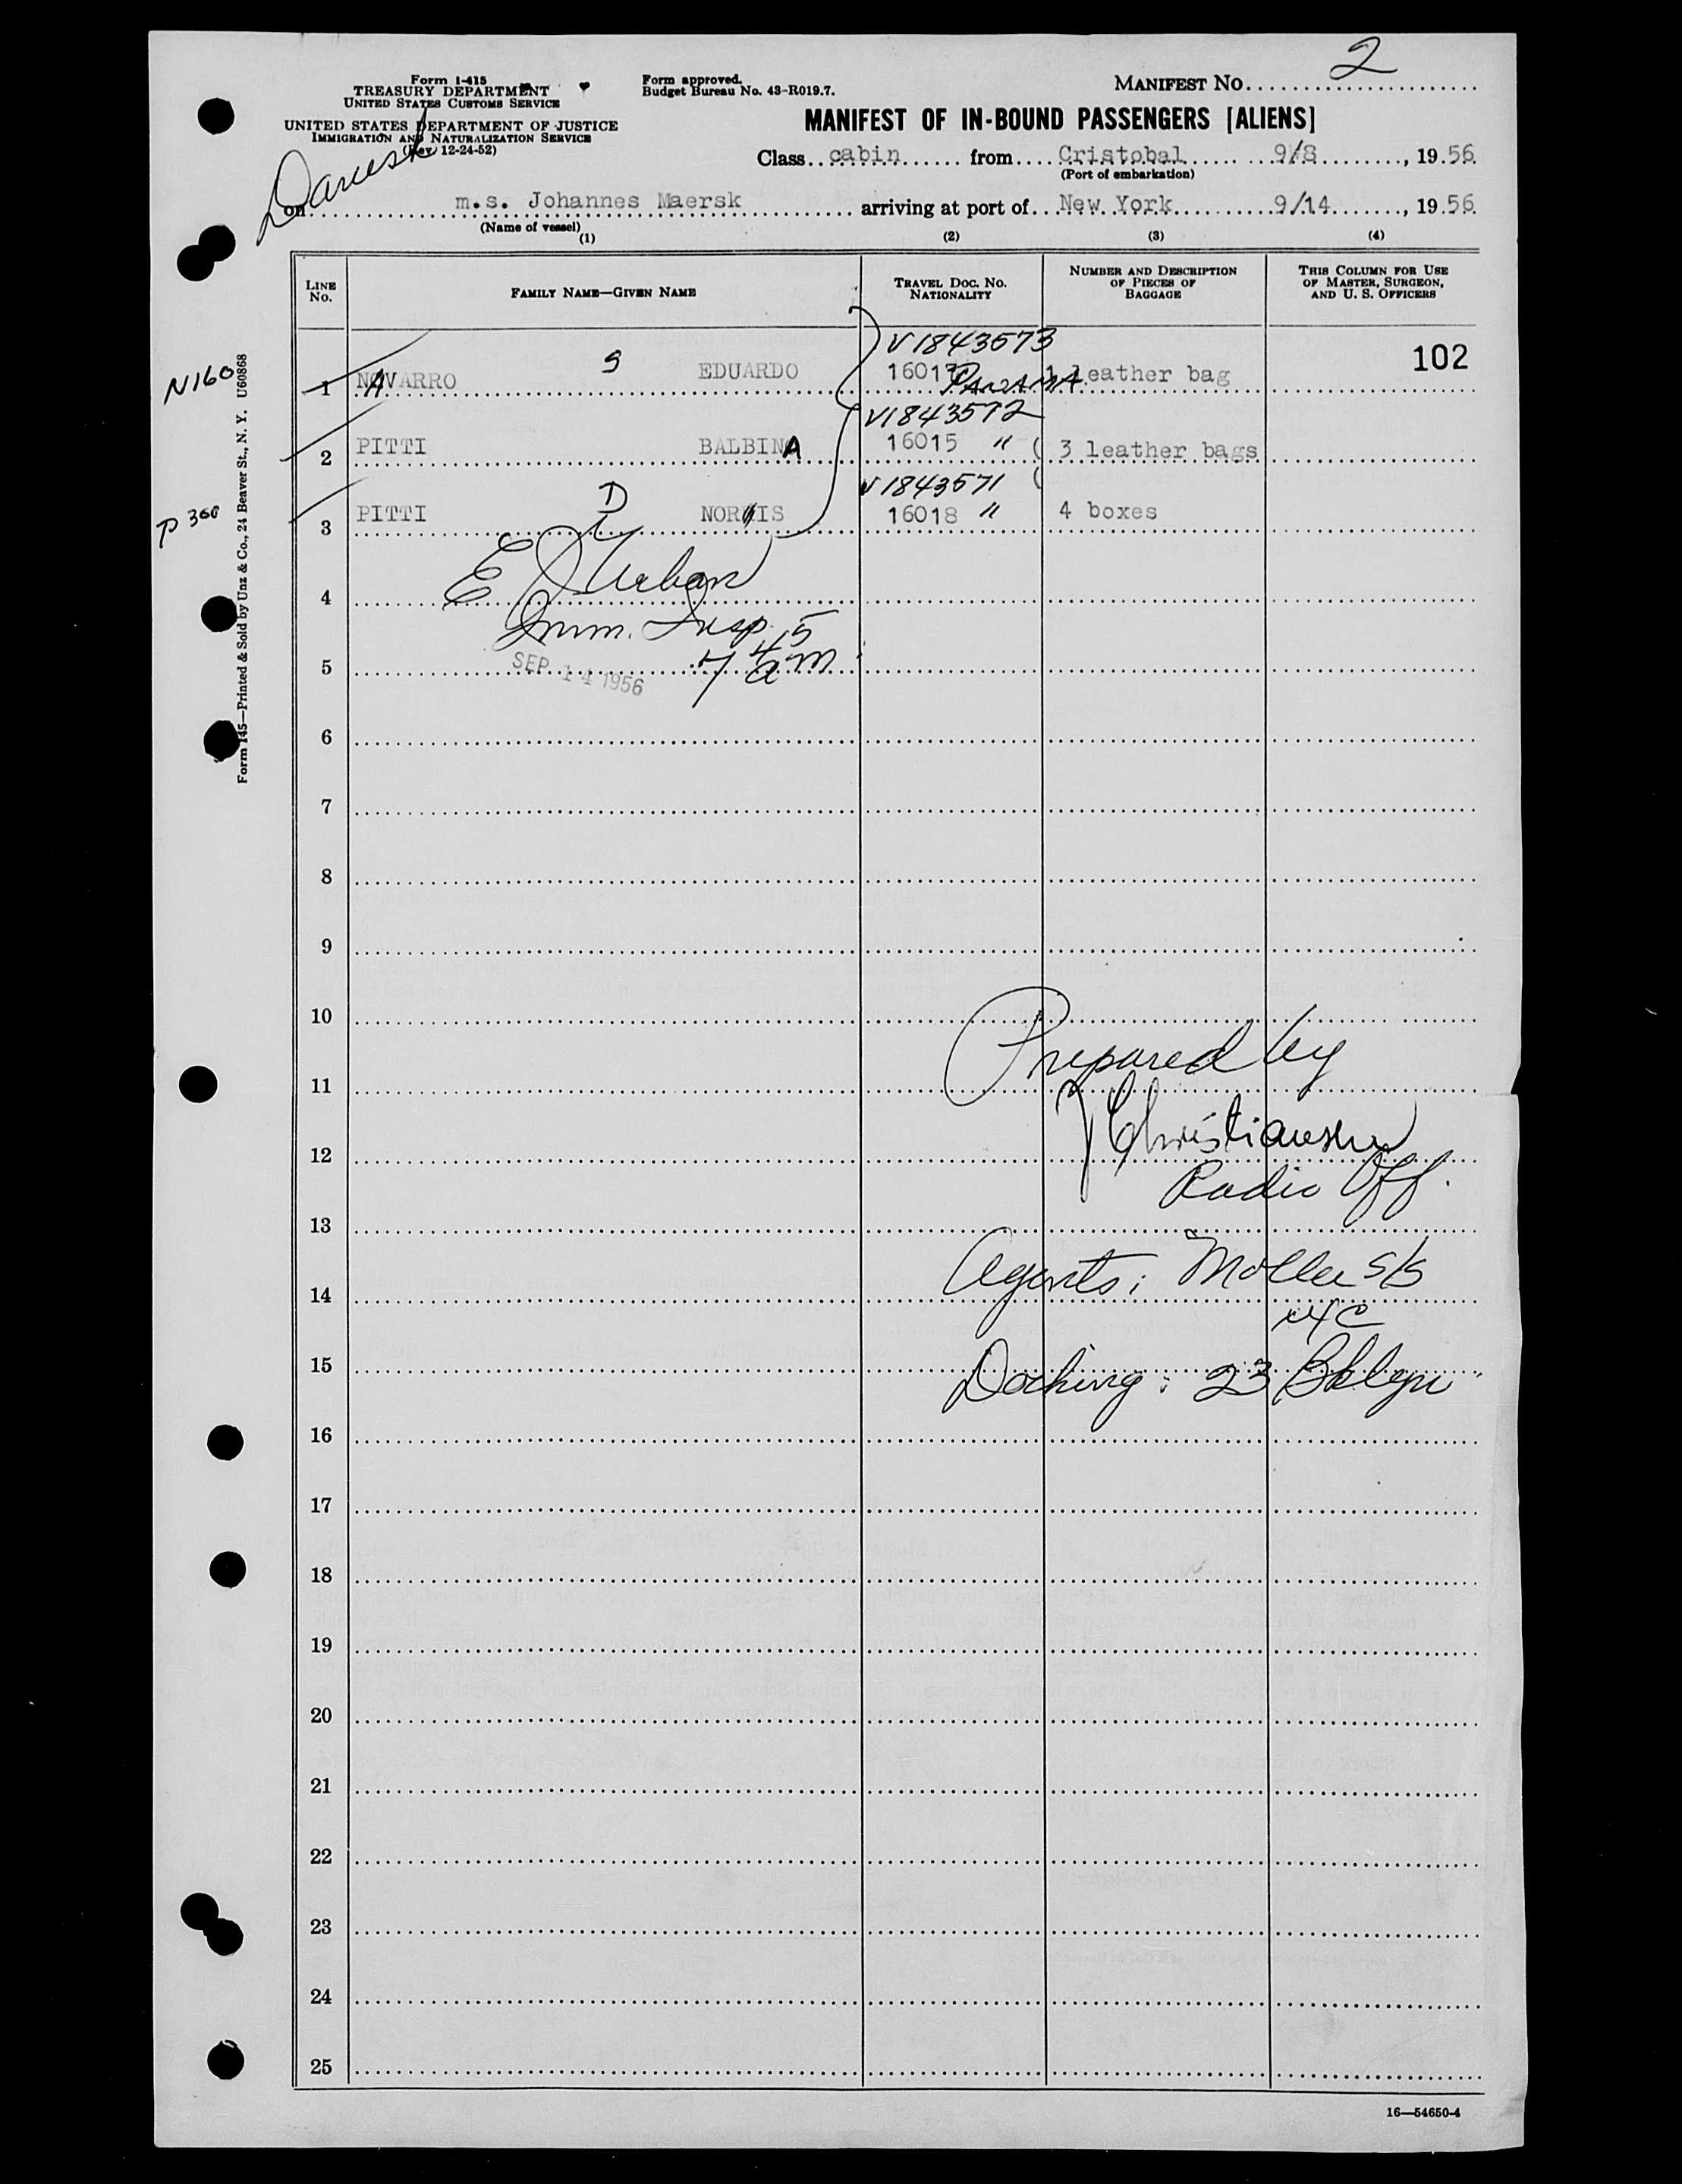 2
Form I-415
TREASURY DEPARTMENT
UNITED STATES CUSTOMS SERVICE
UNITED STATES DEPARTMENT OF JUSTICE
IMMIGRATION AND NATURALIZATION SERVICE
(Rev 12-24-52)
Form approved.
Budget Bureau No. 43-R019.7.
MANIFEST NO.
MANIFEST OF IN-BOUND PASSENGERS [ALIENS]
Class cabin from Cristobal 9/8, 1956
(Port of embarkation)
Danish
on m.s. Johannes Maersk arriving at port of New York 9/14, 1956
(Name of vessel)
(1) (2) (3) (4)
LINE No. FAMILY NAME—GIVEN NAME TRAVEL DOC. NO. NATIONALITY NUMBER AND DESCRIPTION OF PIECES OF BAGGAGE THIS COLUMN FOR USE OF MASTER, SURGEON, AND U. S. OFFICERS
V1843573
N160
1 NAVARRO EDUARDO PANAMA 1 leather bag 102
V1843572
2 PITTI BALBINA 16015 " 3 leather bags
V1843571
P300
3 PITTI D NORIS 16018 " 4 boxes
E J Urban
4
Imm. Insp.
5 SEP 14 1956 7 45 am
6
7
8
9
10
Prepared by
11
Christiansen
12
Radio Off.
13
Agents: Moller S/S
14
NYC
15
Docking: 23 Bklyn
16
17
18
19
20
21
22
23
24
25
Form 145—Printed & Sold by Unz & Co., 24 Beaver St., N. Y. U60868
16—54650-4